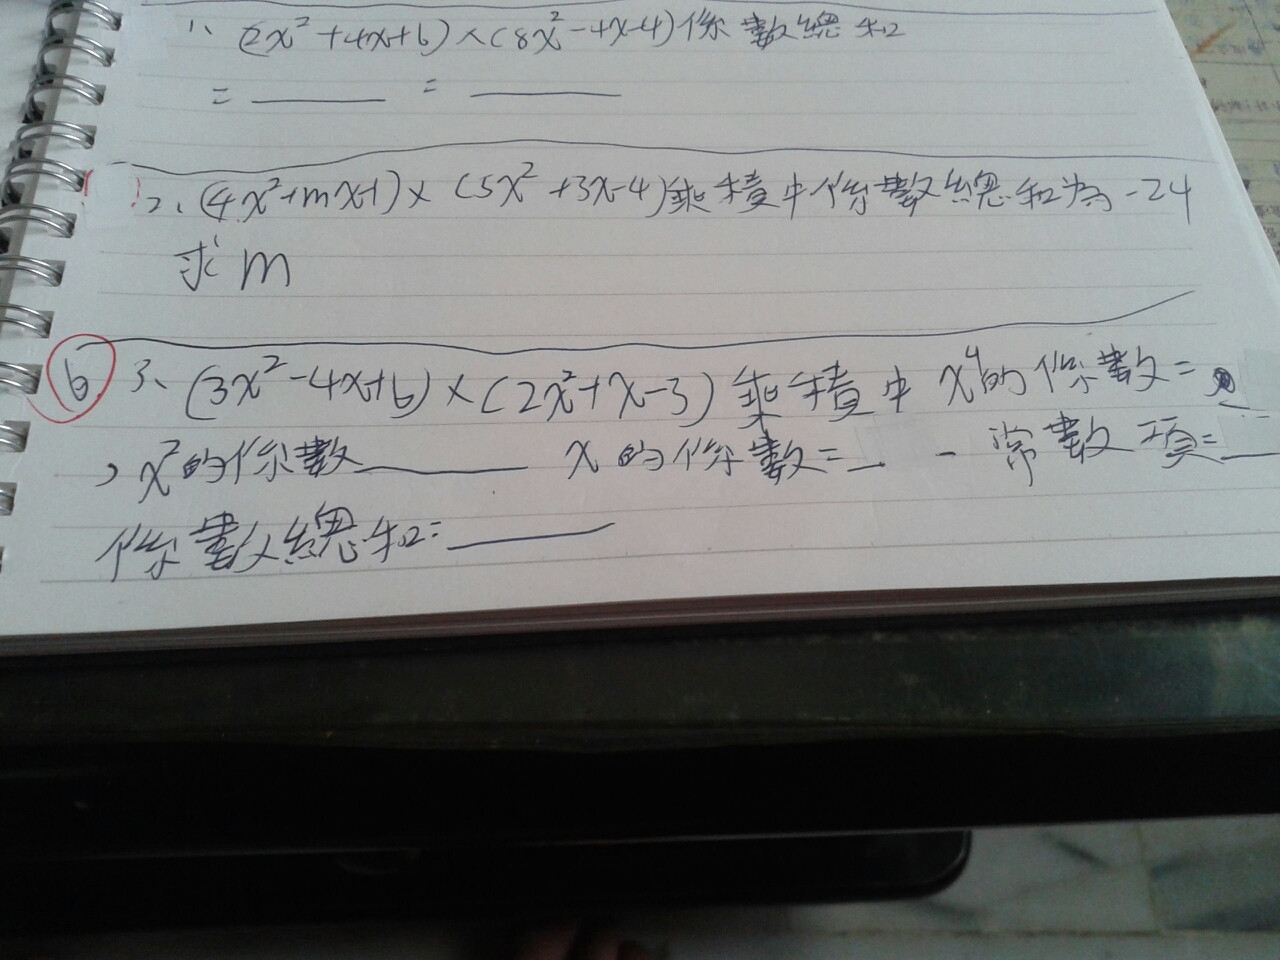 1、(2x²+4x+6)×(8x²-4x-4)係數總和
= ______ = ______
2、(4x²+mx+1)×(5x²+3x-4)乘積中係數總和為-24
求m
6 3、(3x²-4x+6)×(2x²+x-3)乘積中x⁴的係數=__
,x²的係數______ x的係數=_ - 常數項=__
係數總和=______